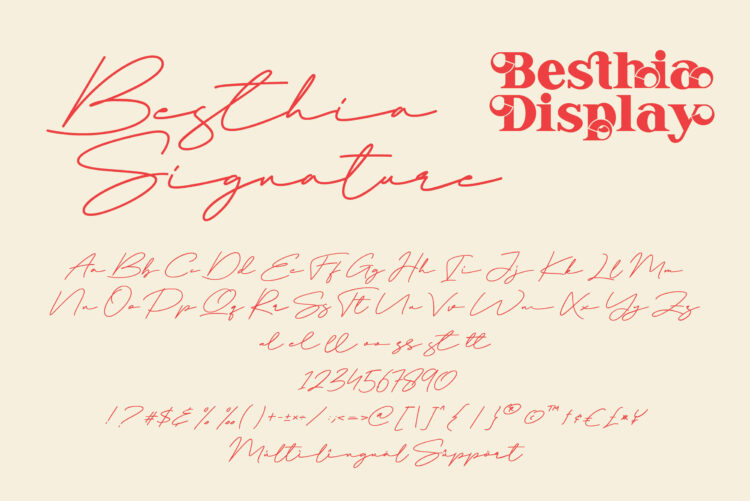 Besthia
Signature
Besthia
Display
Aa Bb Cc Dd Ee Ff Gg Hh Ii Jj Kk Ll Mm
Nn Oo Pp Qq Rr Ss Tt Uu Vv Ww Xx Yy Zz
al el ll oo ss st tt
1234567890
!?#$&%‰()+-±×÷/.,<=>@[\]^{|}®©™†¢€£¤¥
Multilingual Support